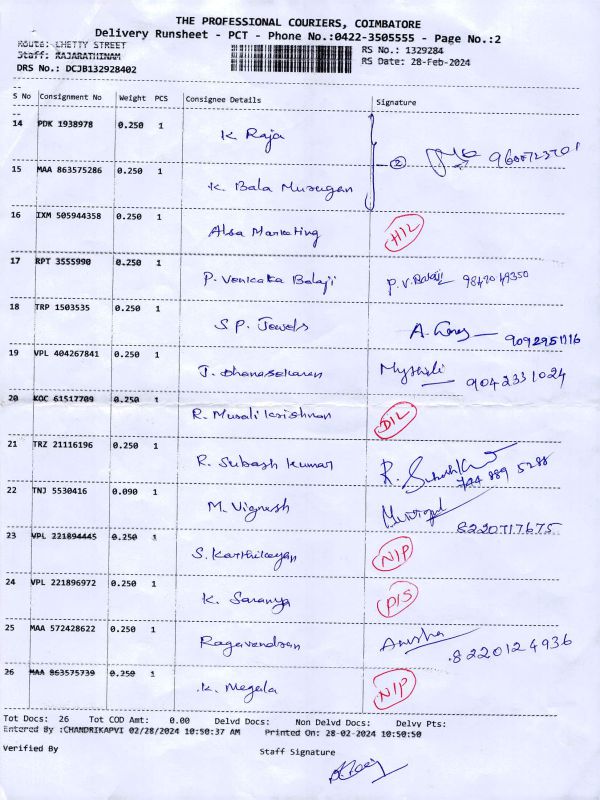 THE PROFESSIONAL COURIERS, COIMBATORE
Delivery Runsheet - PCT - Phone No.:0422-3505555 - Page No.:2
Route: CHETTY STREET
Staff: RAJARATHINAM
DRS No.: DCJB132928402
RS No.: 1329284
RS Date: 28-Feb-2024
S No Consignment No Weight PCS Consignee Details Signature
14 PDK 1938978 0.250 1 K. Raja
2
15 MAA 863575286 0.250 1 K. Bala Murugan
16 IXM 505944358 0.250 1 Alsa Marketing
17 RPT 3555990 0.250 1 P. Venkata Balaji P.V. Balaji 9842049350
18 TRP 1503535 0.250 1 S.P. Jewels A.
19 VPL 404267841 0.250 1 J. Dhanasekaran Mythili 9042331024
20 KOC 61517709 0.250 1 R. Murali Krishnan D/L
21 TRZ 21116196 0.250 1 R. Subash Kumar R.
22 TNJ 5530416 0.090 1 M. Vignesh 8220717675
23 VPL 221894445 0.250 1 S. Karthikeyan N/P
24 VPL 221896972 0.250 1 K. Saranya P/S
25 MAA 572428622 0.250 1 Ragavendran Anusha 8220124936
26 MAA 863575739 0.250 1 K. Megala N/P
Tot Docs: 26 Tot COD Amt: 0.00 Delvd Docs: Non Delvd Docs: Delvy Pts:
Entered By :CHANDRIKAPVI 02/28/2024 10:50:37 AM Printed On: 28-02-2024 10:50:50
Verified By Staff Signature